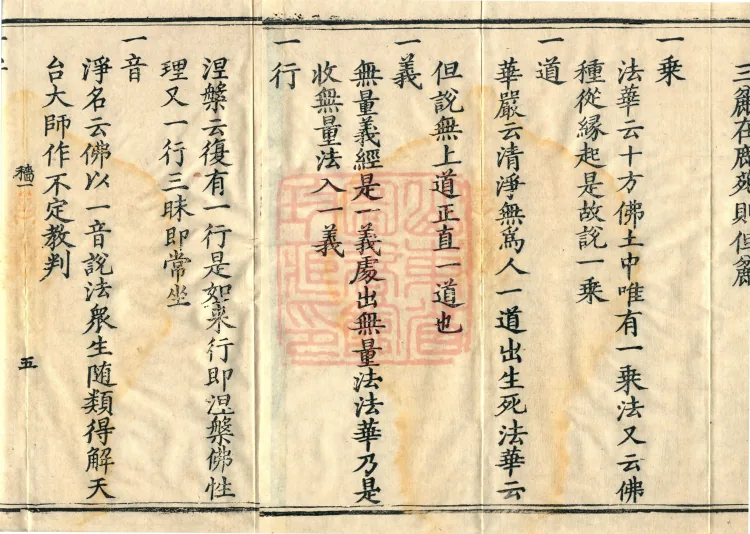 三麤在鹿苑則但麤
一乗
法華云十方佛土中唯有一乗法又云佛
種從縁起是故說一乗
一道
華嚴云清淨無爲人一道出生死法華云
但說無上道正直一道也
一義
無量義經是一義處出無量法法華乃是
收無量法入一義
一行
涅槃云復有一行是如來行即涅槃佛性
理又一行三昧即常坐
一音
淨名云佛以一音說法衆生随類得解天
台大師作不定教判
五